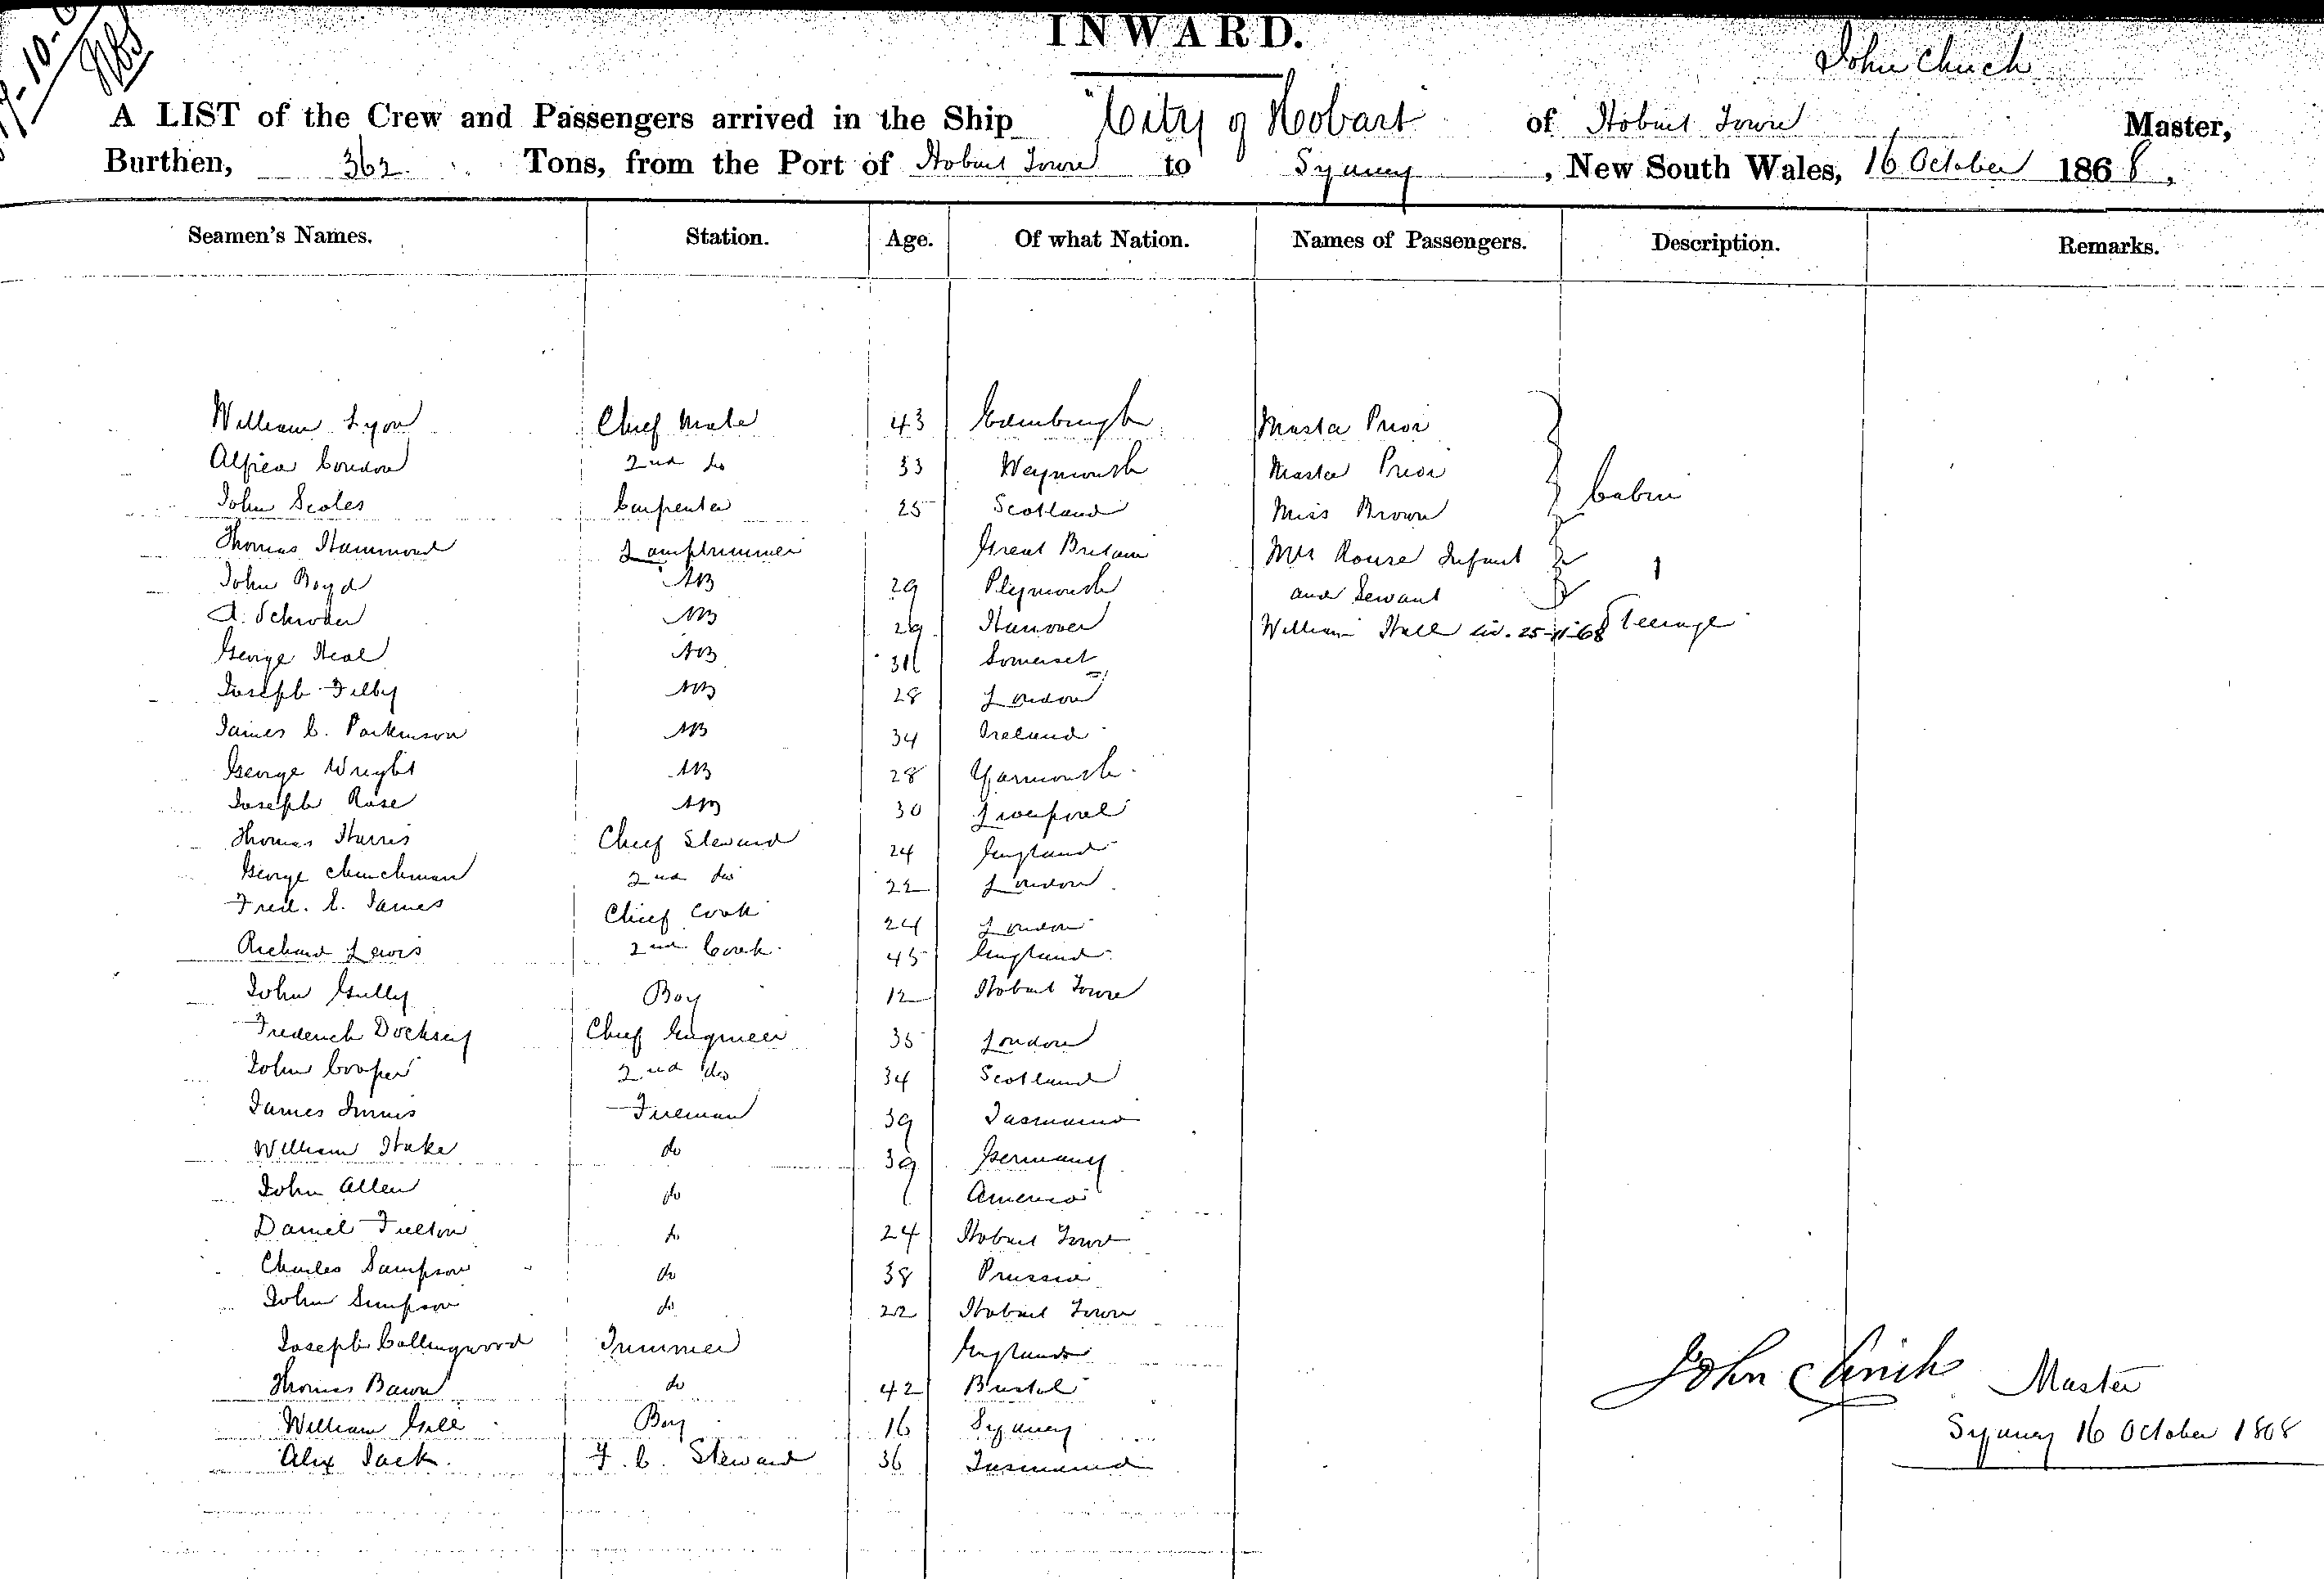 INWARD.
John Clinch
A LIST of the Crew and Passengers arrived in the Ship "City of Hobart" of Hobart Town Master,
Burthen, 362 Tons, from the Port of Hobart Town to Sydney, New South Wales, 16 October 1868,
Seamen's Names. Station. Age. Of what Nation. Names of Passengers. Description. Remarks.
William Lyon Chief Mate 43 Edinburgh Master Prior
Alfred Condon 2nd do 33 Weymouth Master Prior
John Scoles Carpenter 25 Scotland Miss Brown Cabin
Thomas Hammond Lamptrimmer Great Britain Mrs Rouse Infant 1
John Boyd AB 29 Plymouth and Servant
A. Schroder AB 29 Hanover William Hall 25-11-68 Steerage
George Neal AB 31 Somerset
Joseph Filby AB 28 London
James C. Parkinson AB 34 Ireland
George Wright AB 28 Yarmouth
Joseph Rose AB 30 Liverpool
Thomas Harris Chief Steward 24 England
George Churchman 2nd do 22 London
Fred. C. James Chief Cook 24 London
Richard Lewis 2nd Cook 45 England
John Gully Boy 12 Hobart Town
Frederick Docksey Chief Engineer 35 London
John Cooper 2nd do 34 Scotland
James Innis Fireman 39 Tasmania
William Hake do 39 Germany
John Allen do America
Daniel Fulton do 24 Hobart Town
Charles Sampson do 38 Prussia
John Simpson do 22 Hobart Town
Joseph Collingwood Trimmer England
Thomas Bacon do 42 Bristol
William Gill Boy 16 Sydney
Alex Jack F. C. Steward 36 Tasmania
John Clinch Master
Sydney 16 October 1868